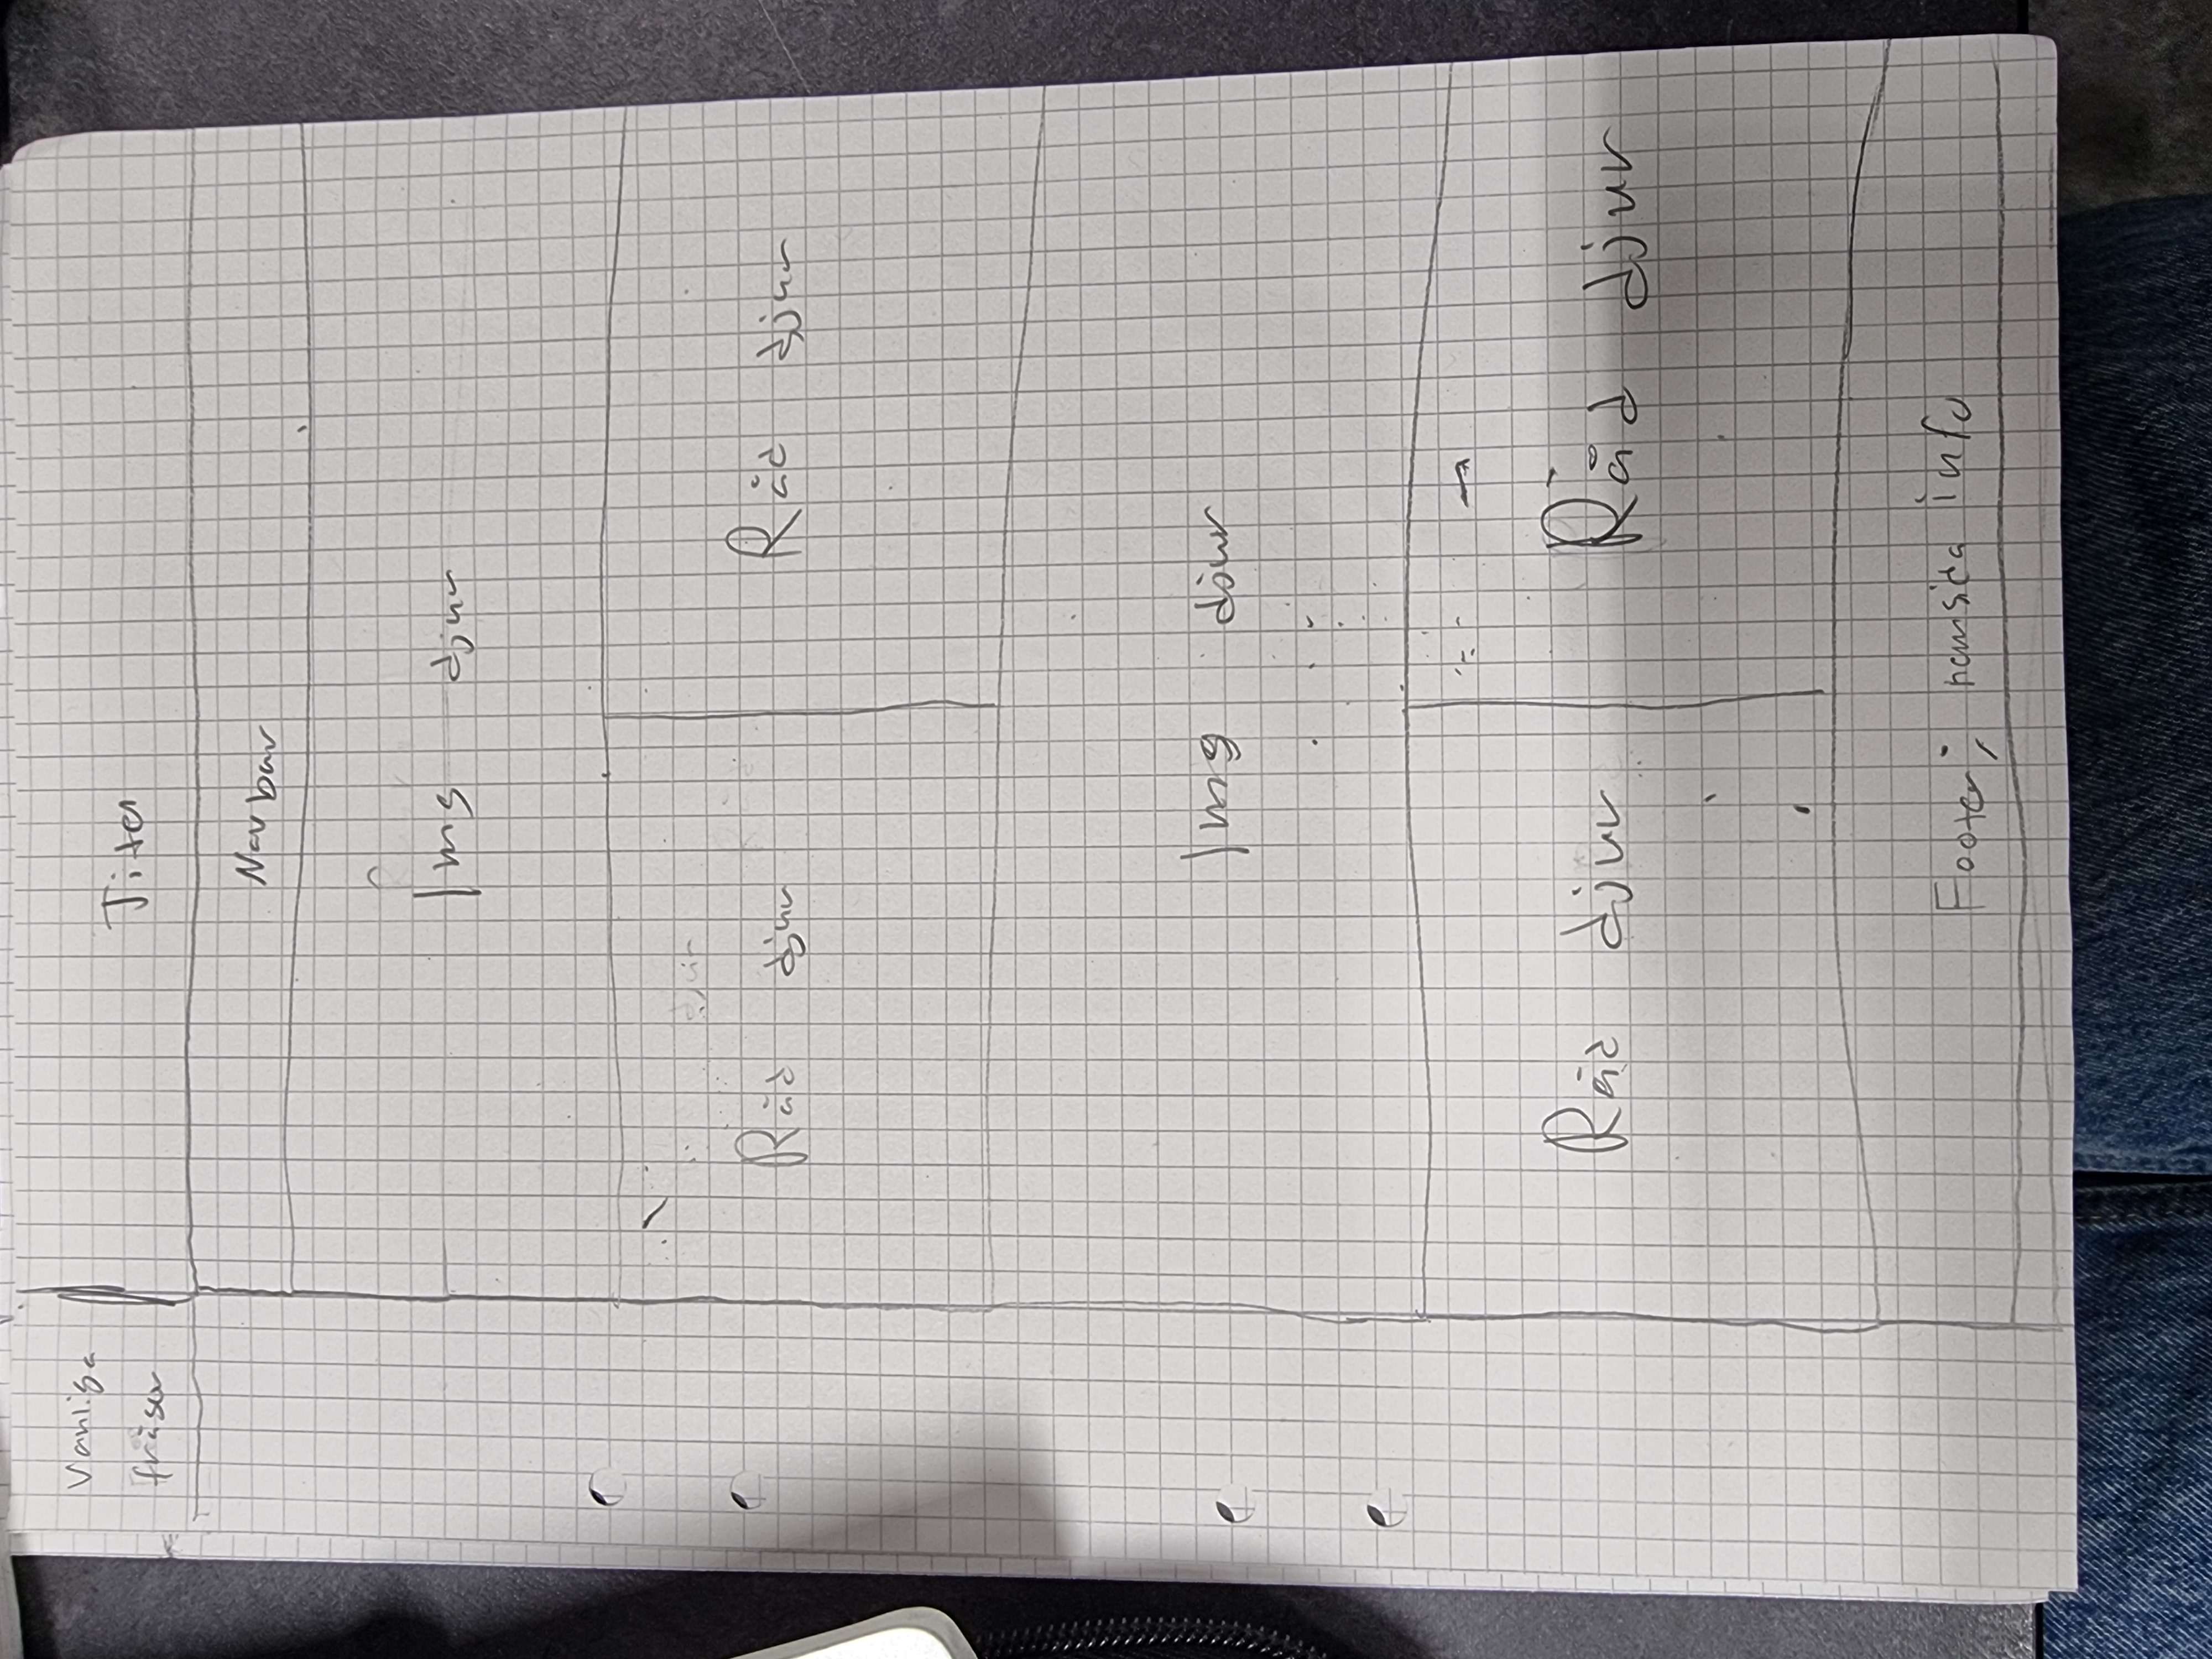 Vanliga
frågor
Titel
Navbar
Img djur
Råd djur
Råd djur
Img djur
Råd djur
Råd djur
Footer, hemsida info